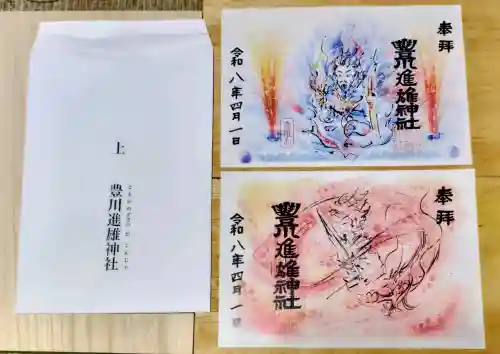 上
豊川進雄神社
奉拝
豐川進雄神社
令和八年四月一日
奉拝
豐川進雄神社
令和八年四月一